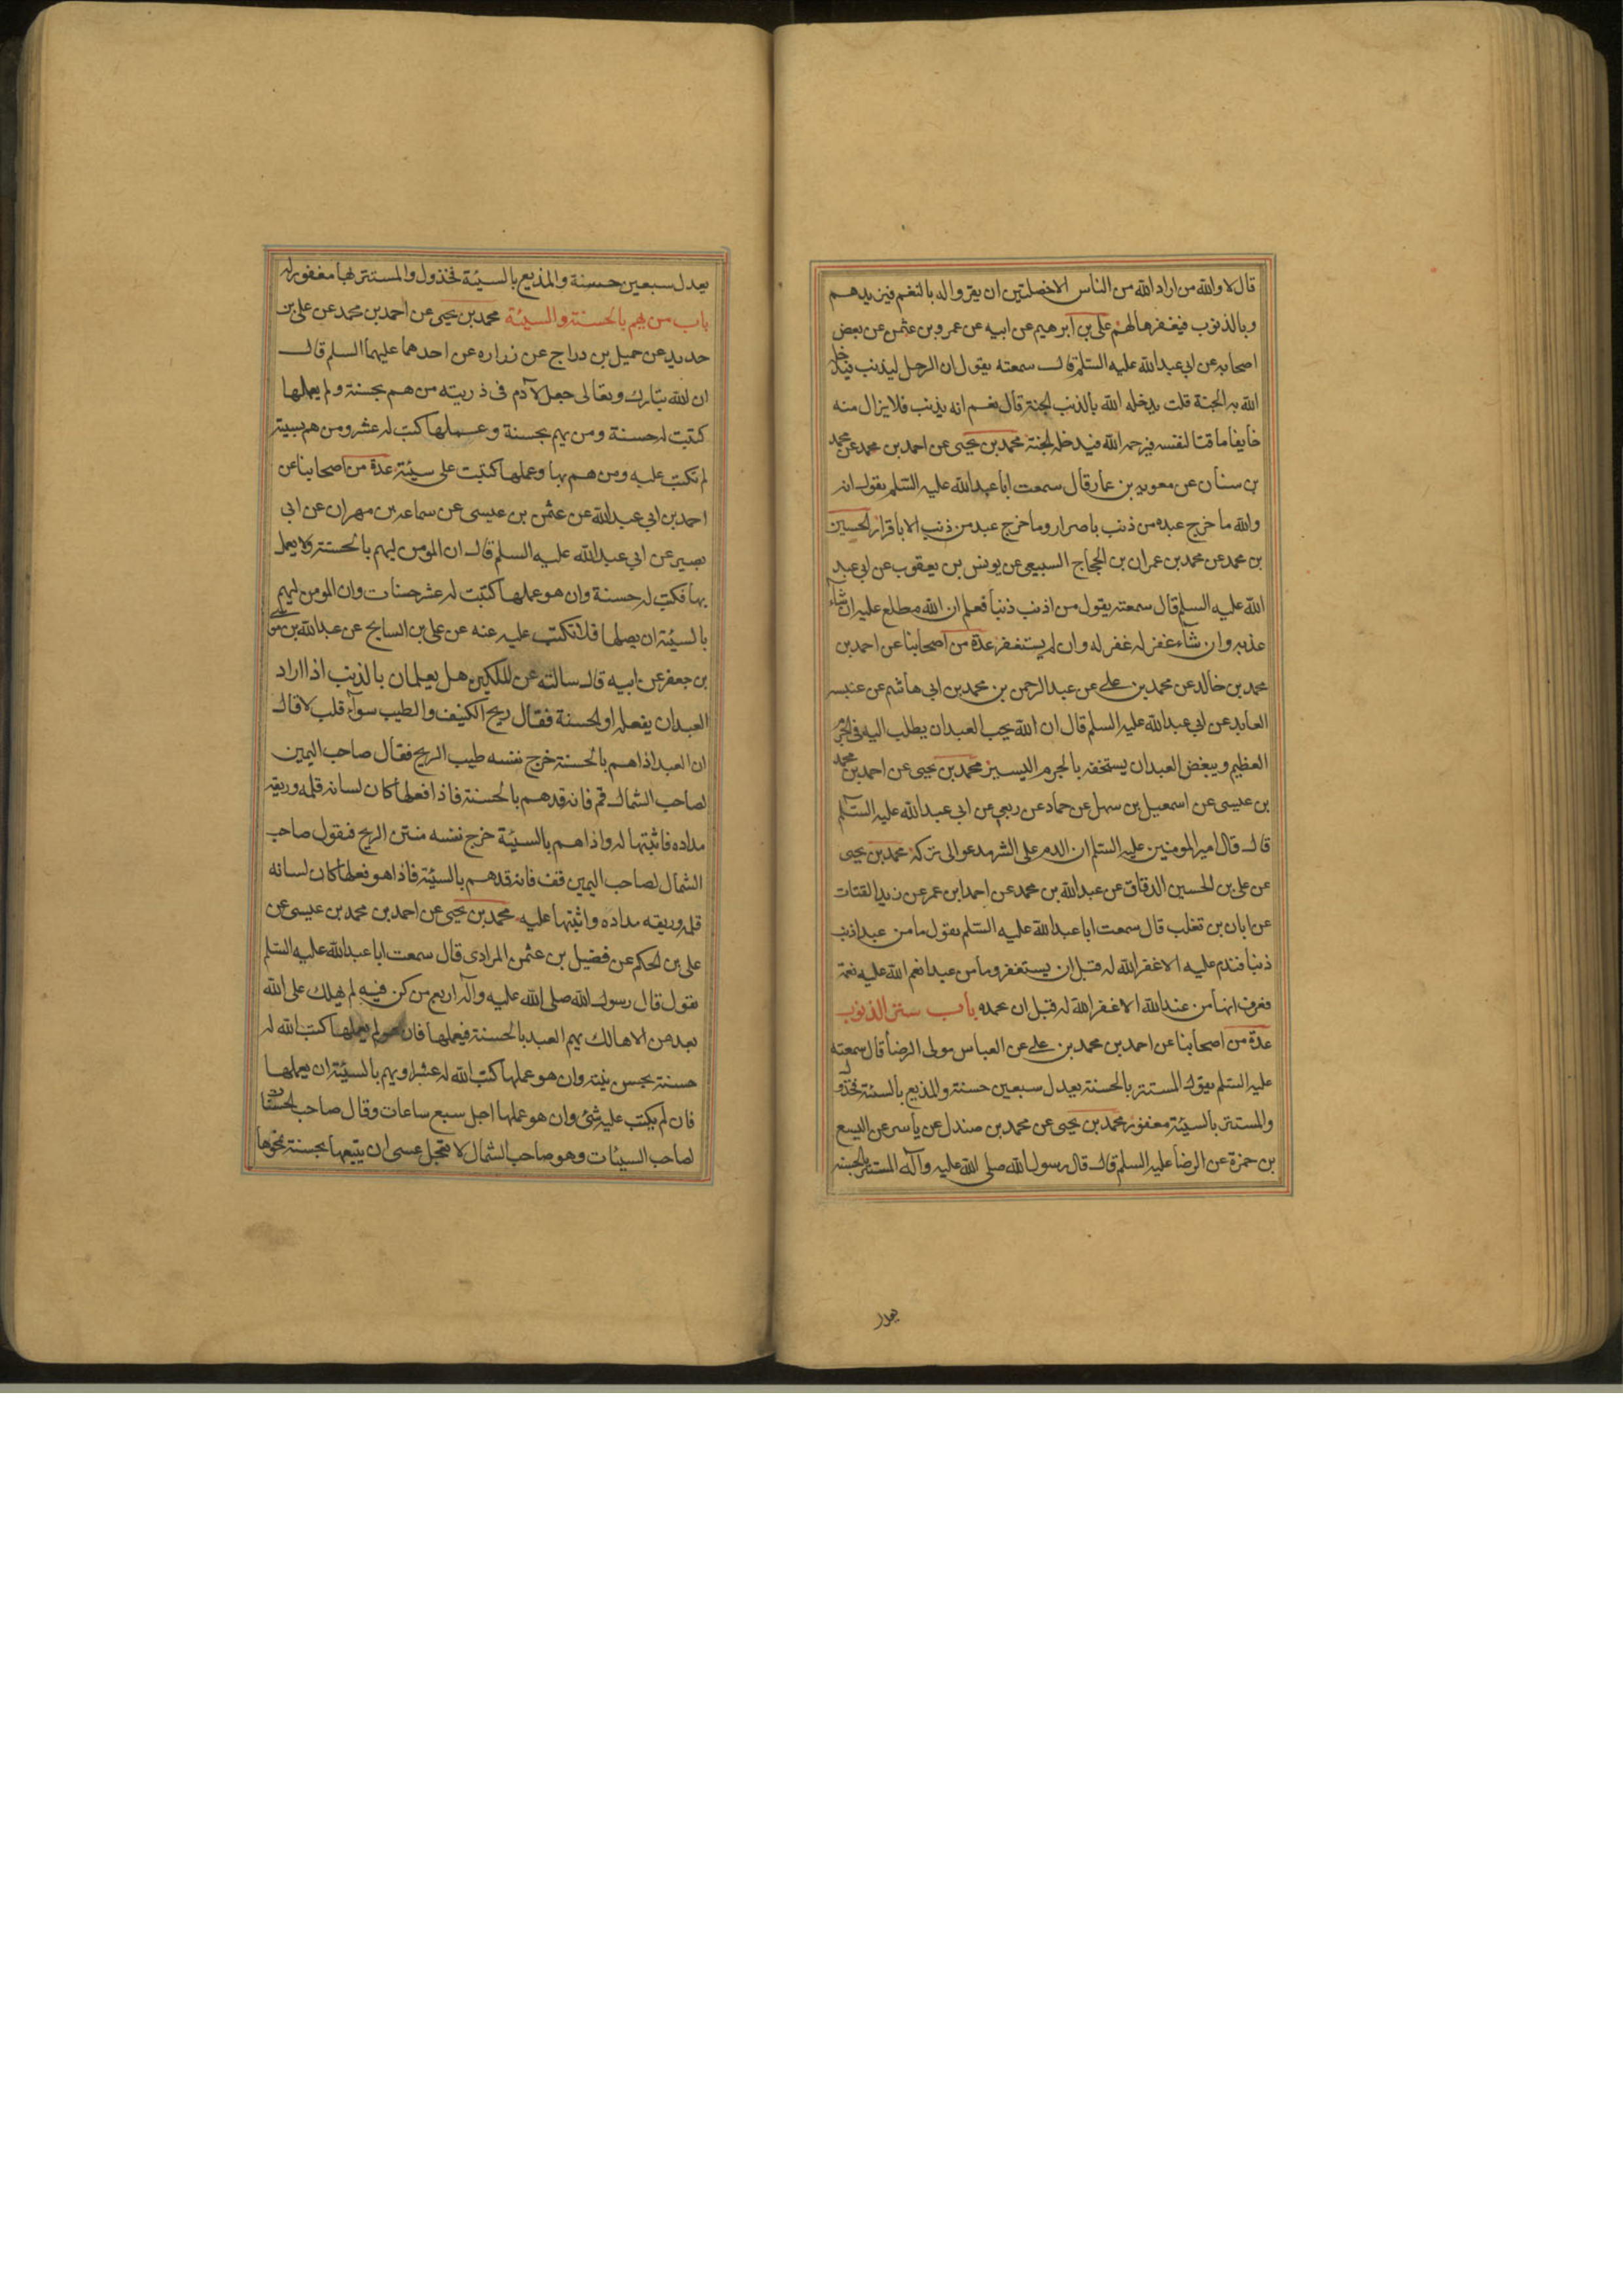 قال لا والله من اراد الله من الناس الا خصلتين ان يقروا له بالنعم فيزيدهم
وبالذنوب فيغفرها لهم علي بن ابرهيم عن ابيه عن عمرو بن عثمن عن بعض
اصحابه عن ابي عبدالله عليه السلم قال سمعته يقول ان الرجل ليذنب فيدخله
الله به الجنة قلت يدخله الله بالذنب الجنة قال نعم انه يذنب فلا يزال منه
خايفا ماقتا لنفسه فيرحمه الله فيدخله الجنة محمد بن يحيى عن احمد بن محمد عن محمد
بن سنان عن معويه بن عمار قال سمعت ابا عبدالله عليه السلم يقول انه
والله ما خرج عبده من ذنب باصرار وما خرج عبد من ذنب الا باقرار الحسين
بن محمد عن محمد بن عمران بن الحجاج السبيعي عن يونس بن يعقوب عن ابي عبد
الله عليه السلم قال سمعته يقول من اذنب ذنبا فعلم ان الله مطلع عليه ان شاء
عذبه وان شاء غفر له غفر له وان لم يستغفر عدة من اصحابنا عن احمد بن
محمد بن خالد عن محمد بن علي عن عبد الرحمن بن محمد بن ابي هاشم عن عنبسه
العابد عن ابي عبدالله عليه السلم قال ان الله يحب العبد ان يطلب اليه في الجرم
العظيم ويبغض العبد ان يستخف بالجرم اليسير محمد بن يحيى عن احمد بن محمد
بن عيسى عن اسمعيل بن سهل عن حماد عن ربعي عن ابي عبدالله عليه السلم
قال قال امير المومنين عليه السلم ان الندم على الشر يدعو الى تركه محمد بن يحيى
عن علي بن الحسين الدقاق عن عبدالله بن محمد عن احمد ابن عمر عن زيد القتات
عن ابان بن تغلب قال سمعت ابا عبدالله عليه السلم يقول ما من عبد اذنب
ذنبا فندم عليه الا غفر الله له قبل ان يستغفر وما من عبد انعم الله عليه نعمة
فعرف انها من عند الله الا غفر الله له قبل ان يحمده باب ستر الذنوب
عدة من اصحابنا عن احمد بن محمد بن علي عن العباس مولى الرضا قال سمعته
عليه السلم يقول المستتر بالحسنة يعدل سبعين حسنة والمذيع بالسيئة مخذول
والمستتر بالسيئة مغفور محمد بن يحيى عن محمد بن صندل عن ياسر عن اليسع
بن حمزة عن الرضا عليه السلم قال قال رسول الله صلى الله عليه وآله المستتر بالحسنة
يعدل
يعدل سبعين حسنة والمذيع بالسيئة مخذول والمستتر بها مغفور له
باب من يهم بالحسنة والسيئة محمد بن يحيى عن احمد بن محمد عن علي بن
حديد عن جميل بن دراج عن زراره عن احدهما عليهما السلم قال
ان الله تبارك وتعالى جعل لآدم في ذريته من هم بحسنة ولم يعملها
كتبت له حسنة ومن يهم بحسنة وعملها كتب له عشر ومن هم بسيئة
لم تكتب عليه ومن هم بها وعملها كتبت علي سيئة عدة من اصحابنا عن
احمد بن ابي عبدالله عن عثمن بن عيسى عن سماعه بن مهران عن ابي
بصير عن ابي عبدالله عليه السلم قال ان المومن ليهم بالحسنة ولا يعمل
بها فكتب له حسنة وان هو عملها كتبت له عشر حسنات وان المومن ليهم
بالسيئة ان يعملها فلا تكتب عليه عنه عن علي بن السايح عن عبدالله بن موسى
بن جعفر عن ابيه قال سالته عن الملكين هل يعلمان بالذنب اذا اراد
العبد ان يفعله او الحسنة فقال ريح الكنيف والطيب سوآء قلت لا قال
ان العبد اذا هم بالحسنة خرج نفسه طيب الريح فقال صاحب اليمين
لصاحب الشمال قم فانه قد هم بالحسنة فاذا فعلها كان لسانه قلمه وريقه
مداده فاثبتها له واذا هم بالسيئة خرج نفسه منتن الريح فيقول صاحب
الشمال لصاحب اليمين قف فانه قد هم بالسيئة فاذا هو فعلها كان لسانه
قلمه وريقه مداده واثبتها عليه محمد بن يحيى عن احمد بن محمد بن عيسى عن
علي بن الحكم عن فضيل بن عثمن المرادي قال سمعت ابا عبدالله عليه السلم
يقول قال رسول الله صلى الله عليه وآله اربع من كن فيه لم يهلك على الله
بعدهن الا هالك يهم العبد بالحسنة فيعملها فان هو لم يعملها كتب الله له
حسنة بحسن نيته وان هو عملها كتب الله له عشرا ويهم بالسيئة ان يعملها
فان لم يكتب عليه شئ وان هو عملها اجل سبع ساعات وقال صاحب الحسنات
لصاحب السيئات وهو صاحب الشمال لا تعجل عسى ان يتبعها بحسنة تمحوها